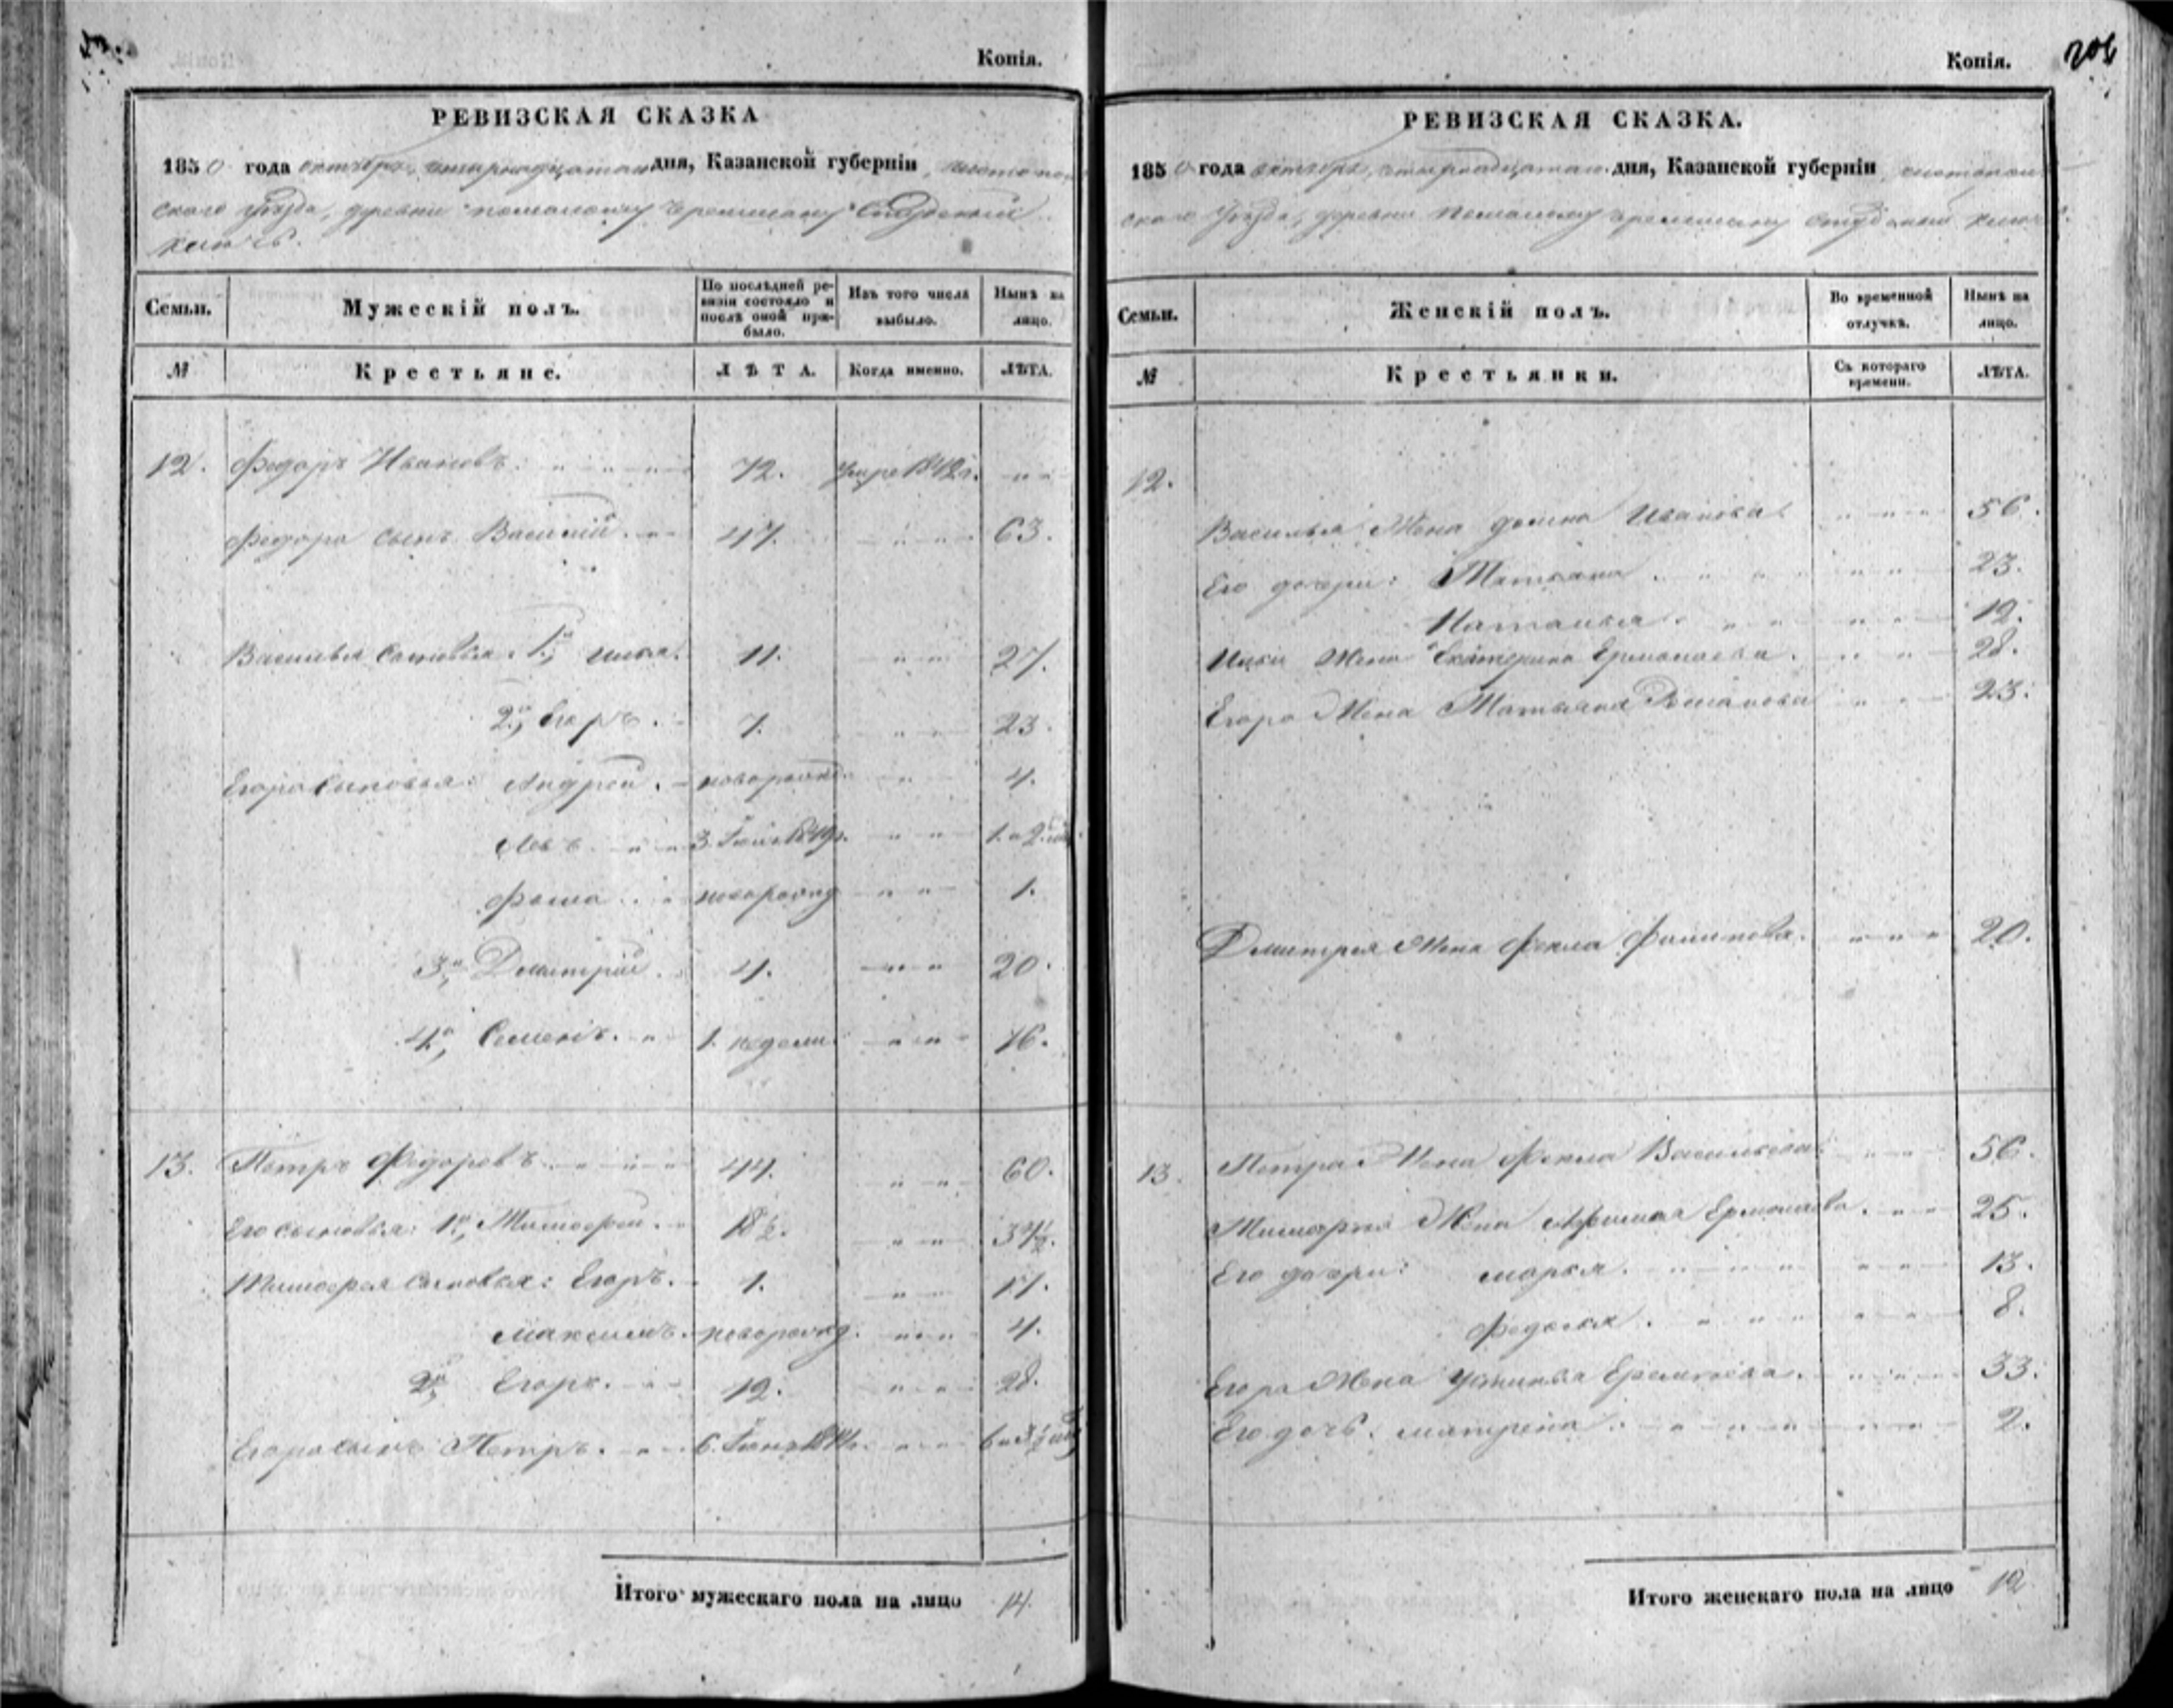 Копія.
РЕВИЗСКАЯ СКАЗКА
1850 года октября четырнадцатаго дня, Казанской губерніи, чистополь
скаго уѣзда, деревни помалому черемшану Студеный
ключь.
Семьи.
Мужескій полъ.
По послѣдней ревизіи состояло и послѣ оной прибыло.
Изъ того числа выбыло.
Нынѣ на лицо.
№
Крестьяне.
ЛѢТА.
Когда именно.
ЛѢТА.
12. Федоръ Ивановъ. 72. умре 1842г.
Федора сынъ Василій. 47. 63.
Василья сыновья. 1й, 11. 27.
2й, Егоръ. 7. 23.
Егора сыновья: Андрей. новорожд. 4.
Левъ 3. 1849г. 1. и 2.
Фома новорожд 1.
3й Дмитрій. 4. 20.
4й, Семенъ. 1. недели. 16.
13. Петръ Федоровъ 44. 60.
Его сыновья: 1й, Тимофей. 18½. 34½.
Тимофея сыновья: Егоръ. 1. 17.
Максимъ. новорожд. 4.
2й, Егоръ. 12. 28.
Егора сынъ Петръ. 6.
Итого мужескаго пола на лицо 14.
Копія.
РЕВИЗСКАЯ СКАЗКА.
1850 года октября, четырнадцатаго дня, Казанской губерніи чистополь
скаго уѣзда, деревни помалому черемшану студеный ключь.
Семьи.
Женскій полъ.
Во временной отлучкѣ.
Нынѣ на лицо.
№
Крестьянки.
Съ котораго времени.
ЛѢТА.
12.
Василья Жена Иванова 56.
Его дочери: Татьяна 23.
Наталья 12.
Жена Екатерина Ермолаева. 28.
Егора Жена Татьяна 23.
Дмитрея Жена Фекла 20.
13. Петра Жена Фекла Васильева 56.
Тимофея Жена Ермолаева. 25.
Его дочери: марья. 13.
Федосья. 8.
Егора Жена Устинья 33.
Его дочь. матрена. 2.
Итого женскаго пола на лицо 12